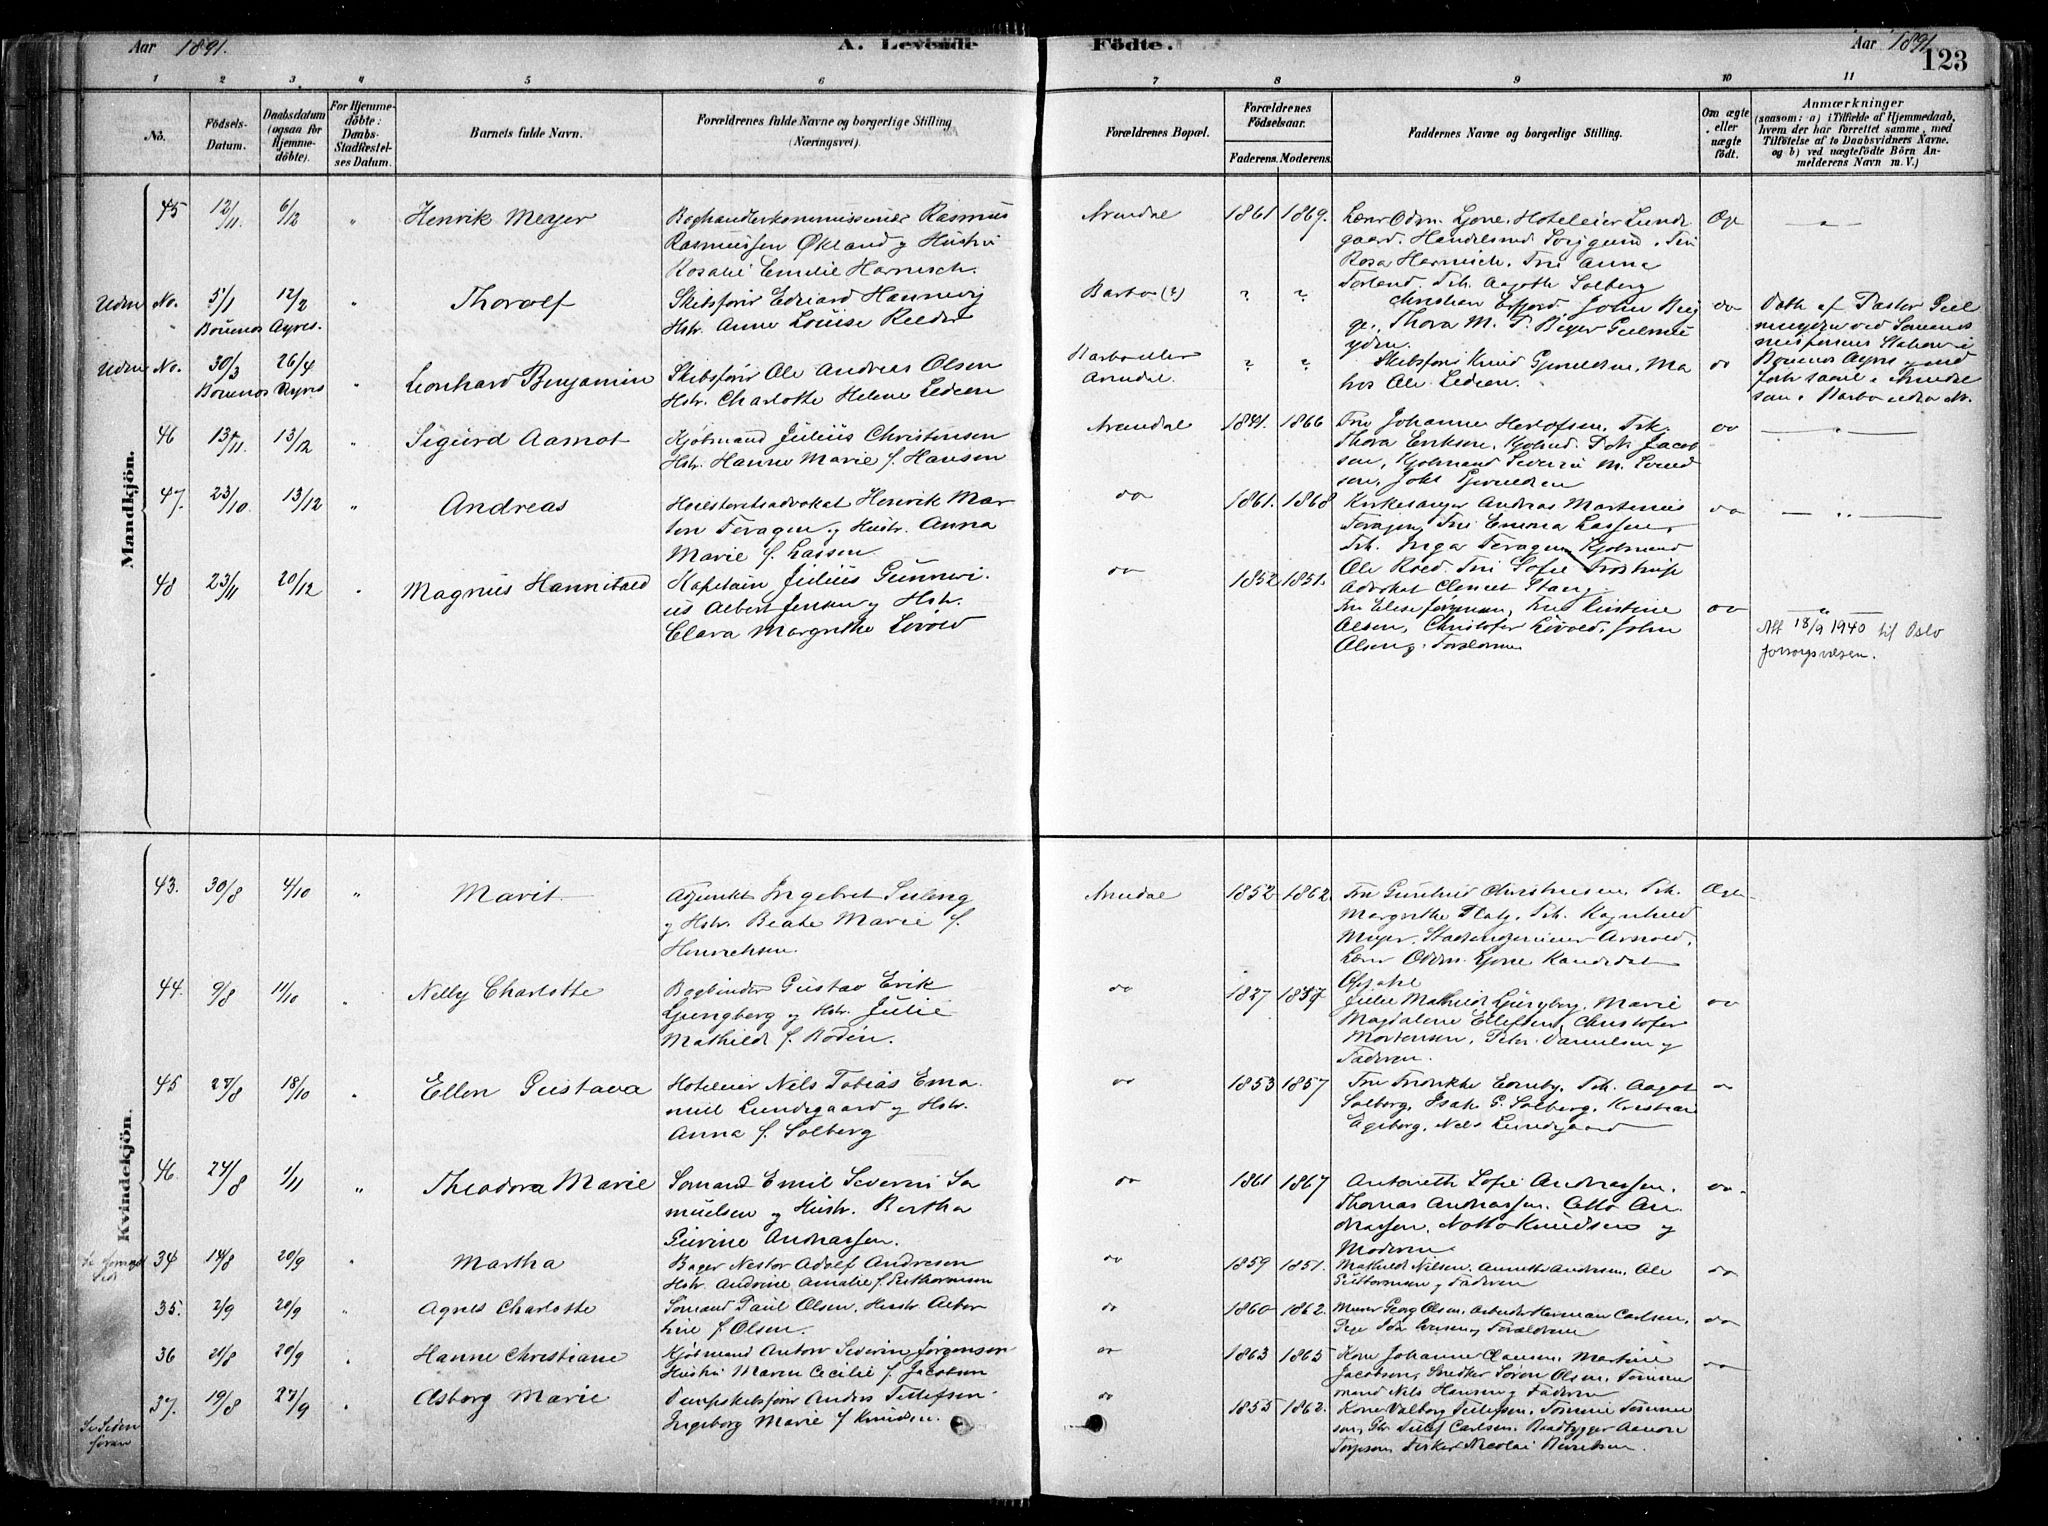 Aar 1891.
A. Levende
Födte.
Aar 1891
123
1 2 3 4 5 6 7 8 9 10 11
No.
Födsels-
Datum.
Daabsdatum
(ogsaa for
Hjemme-
döbte).
For Hjemme-
döbte:
Daabs-
Stadfæstel-
ses Datum.
Barnets fulde Navn.
Forældrenes fulde Navne og borgerlige Stilling
(Næringsvei).
Forældrenes Bopæl.
Forældrenes
Födselsaar.
Faderens. Moderens.
Faddernes Navne og borgerlige Stilling.
Om ægte
eller
uægte
födt.
Anmærkninger
(saasom: a) i Tilfælde af Hjemmedaab,
hvem der har forrettet samme, med
Tilföielse af to Daabsvidners Navne.
og b) ved uægtefödte Börn An-
melderens Navn m. V.)
Mandkjön.
45 12/11 6/12 " Henrik Meyer
Boghandlerkommissionær Rasmus
Rasmussen Økland og Hustru
Rosalie Emilie Harnisch.
Arendal 1861 1869.
Lærer Odm. Ljone, Hoteleier Lunde-
gaard. Handelsmd
Rosa Harnisch, Frk Anna
Torland. Frk. Aagoth Solberg
Æg "
Uden No. 5/1 12/2 " Thoralf
Bouenos Ayres.
Skibsfører Edvard Hannevig
Hstr. Anne Louise Reeder
Barbo (?) ? ?
Christian John
Thora M. P. Beyer Geelmu
yden.
do
Døbt af Pastor Geel
muyden ved Sømands
missionens Station i
Bouenos Ayres
Uden No. 30/3 26/4 " Leonhard Benjamin
Bouenos Ayres
Skibsfører Ole Andreas Olsen
Hstr. Charlotte Helene Ledeen
Barbo eller
Arendal. ? ?
Skibsfører Knud Gjeruldsen, Ma
Ole Ledeen.
do
46 13/11 13/12 " Sigurd Aamot
Kjøbmand Julius Christensen
Hstr. Hanne Marie f. Hansen
Arendal 1841. 1866
Fru Johanne Herlofsen, Frk.
Thora Eriksen, Kjøbmd. P. N. Jacob
sen, Kjøbmand Severin M. Svend
sen, Gjeruldsen
do "
47. 23/10 13/12 " Andreas
Høiesteretsadvokat Henrik Mar-
tin Feragen og Hustr. Anna
Marie f. Lassen.
do 1861. 1868
Kirkesanger Andreas Martenius
Feragen, Fru Emma Lassen,
Frk. Inga Feragen, Kjøbmand
Ole Roed. Fru Sofie
Advokat Clemet Stang
do "
48 23/11 20/12 " Magnus Hannibald
Kaptain Julius Gunneri-
us Albert Jensen og Hstr.
Clara Margrethe Lovold
do 1852 1851.
Fru Elise Jørgensen, Fru Kirstine
Olsen, Christofer Lovold, John
Olsen og Forældrene
do "
Att 18/9 1940 til Oslo
forsorgsvesen.
Kvindekjön.
43. 30/8 4/10 " Marit
Adjunkt Ingebret Suleng
og Hstr. Beate Marie f.
Henrichsen.
Arendal 1852 1862.
Fru Gunhild Christensen, Frk.
Margrethe Platz, Frk. Ragnhild
Meyer. Stadsingeniør Arnold,
Lærer Odm. Ljone Kandidat
Æg
44. 9/8 11/10 " Nelly Charlotte
Bogbinder Gustav Erik
Ljungberg og Hstr. Julie
Mathilde f. Bodin.
do 1827 1837
Julie Mathilde Ljungberg, Marie
Magdalene Ellefsen, Christofer
Mortensen, Peter Danielsen og
Faderen.
do
45 27/8 18/10 " Ellen Gustava
Hoteleier Nils Tobias Ema-
nuel Lundegaard og Hstr.
Anna f. Solberg
do 1853 1857
Fru Fredrikke Frk. Aagot
Solberg, Isak G. Solberg, Kristian
Egeberg, Nils Lundegaard
do
46. 24/8 1/11 " Theodora Marie
Sømand Emil Severin Sa
muelsen og Hustr. Bertha
Gurine Andreassen.
do 1861 1867
Antonette Sofie Andreassen,
Thomas Andreassen, Otto An-
dreassen, Notto Knudsen og
Moderen
do
Se forrige
Side
34 14/8 20/9 " Martha
Bager Nestor Adolf Andresen
Hstr. Andrine Amalie f. Guthormsen
do 1859 1851.
Mathilde Nilsen, Annette Andresen, Ole
Guttormsen og Faderen
do
35. 2/9 20/9 " Agnes Charlotte
Sømand Paul Olsen, Hustr.
f. Olsen.
do 1860 1862.
Murer Georg Olsen, Arbeider Herman Carlsen,
Pige Ida Iversen og Forældrene
do
36 21/8 20/9 " Hanne Christiane
Kjøbmand Anton Severin Jørgensen
Hustru Maren Cecilie f. Jacobsen
do 1863 1865
Kone Johanne Clausen, Martine
Jacobsen, Snedker Søren Olsen, Tømmer
mand Nils Hansen og Faderen
do
Se Siden
foran
37. 19/8 27/9 " Asborg Marie
Dampskibsfører Anders Tellefsen
Ingeborg Marie f. Knudsen.
do 1855 1862.
Kone Valborg Tellefsen, Tomine Tomine
sen, Gbr Tellef Carlsen, Baadbygger Aanon
Torjesen, Fisker Nicolai